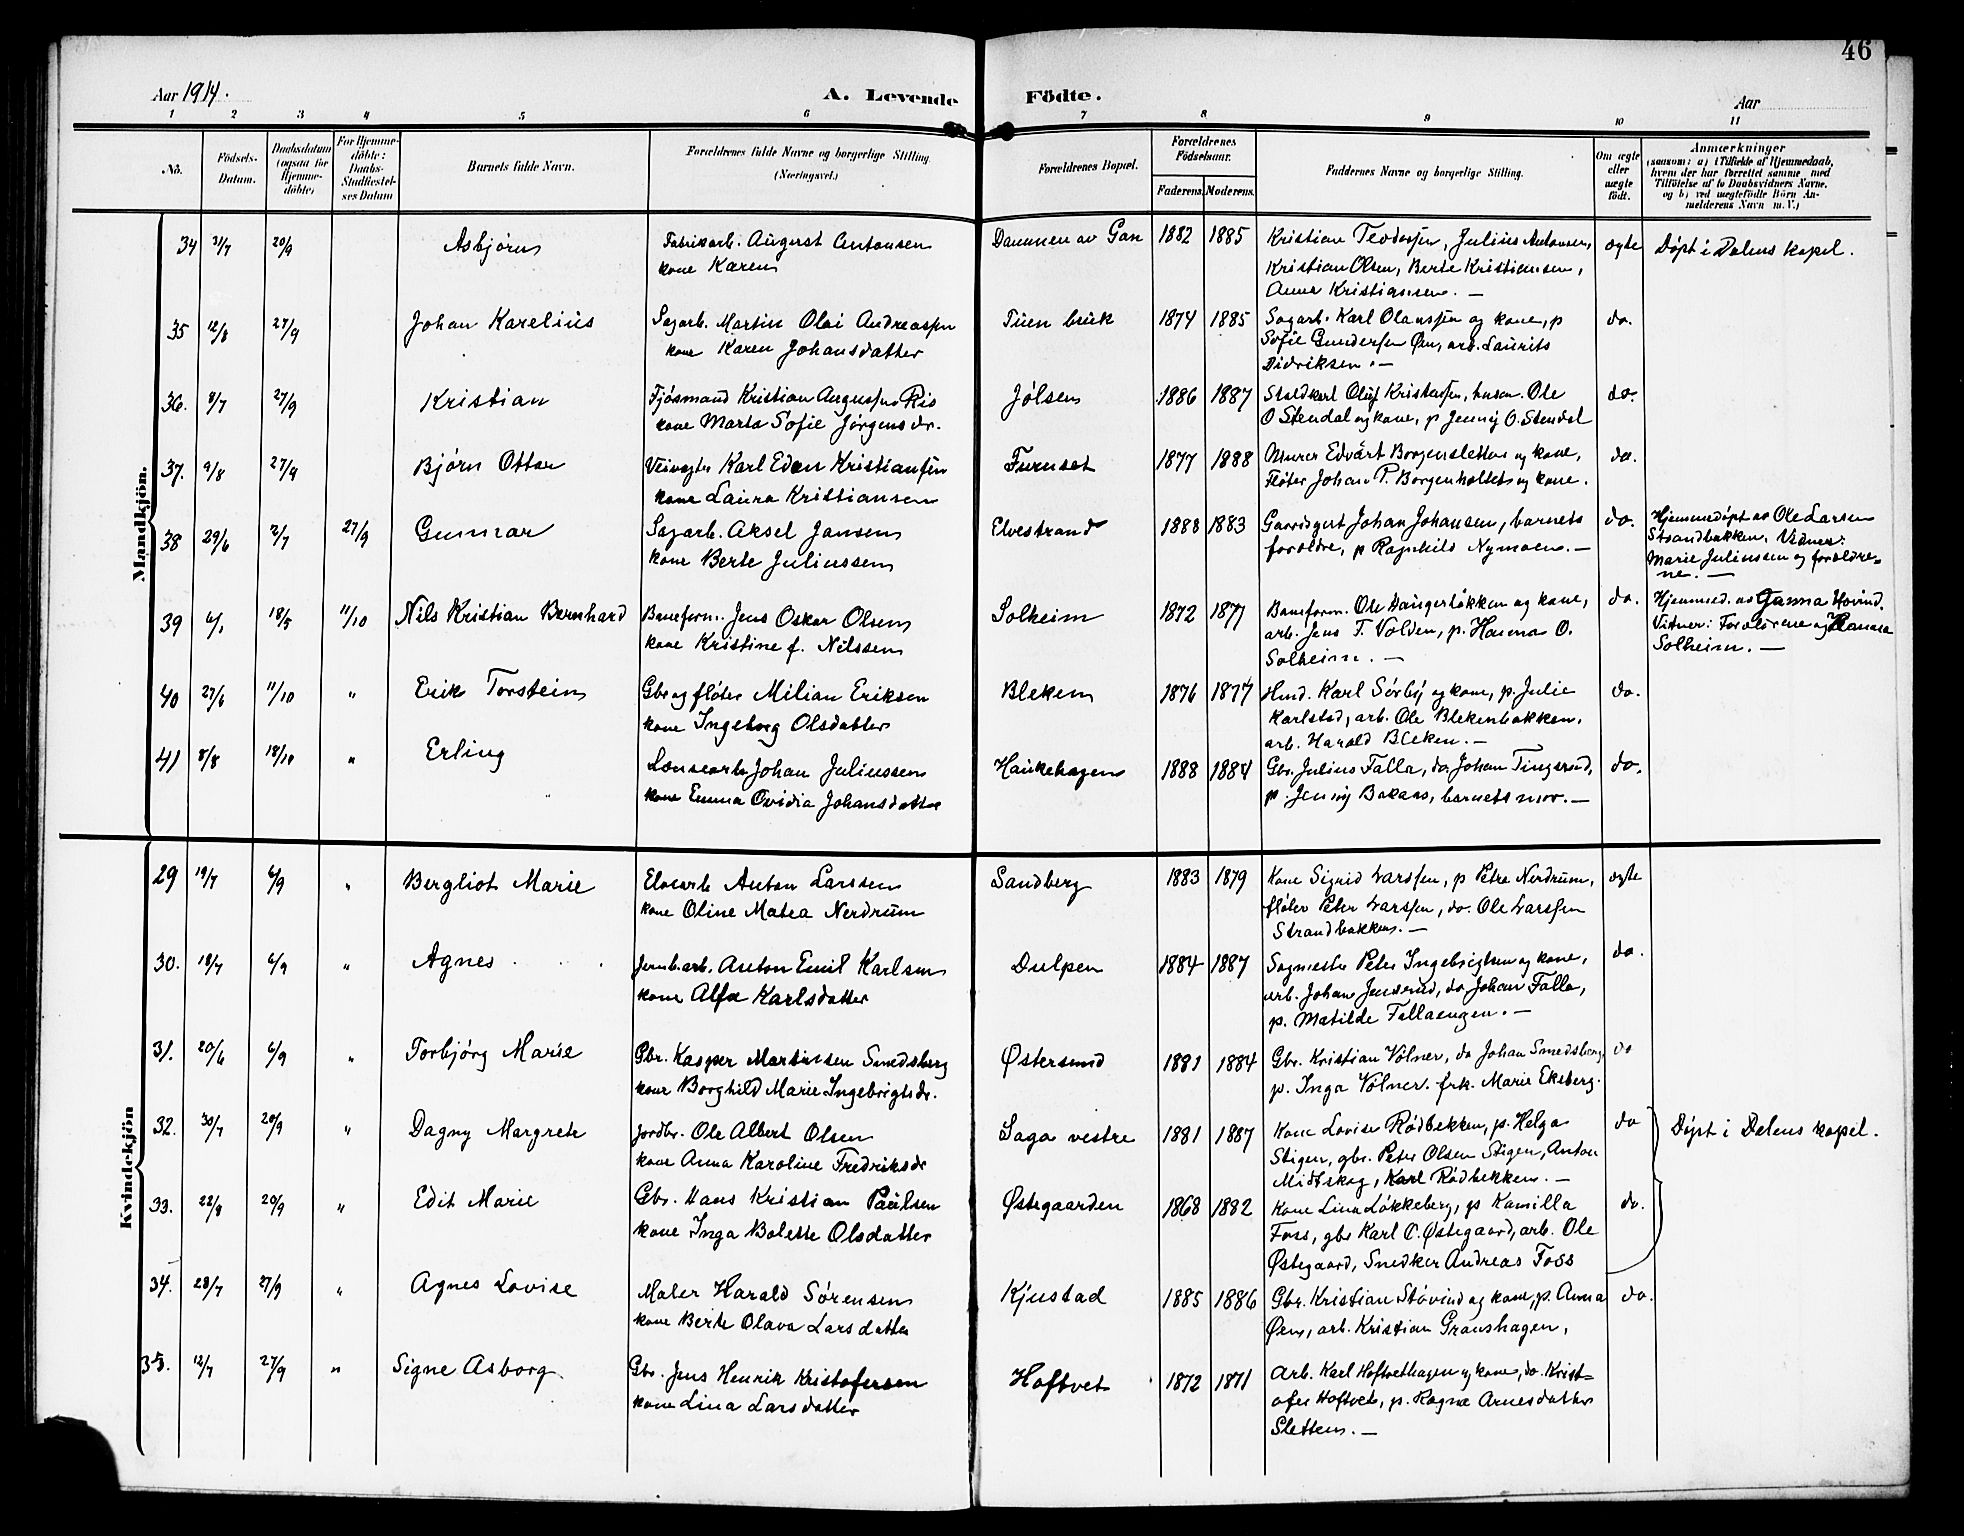 46
Aar 1914.
A. Levende Födte.
Aar
1 2 3 4 5 6 7 8 9 10 11
No.
Födsels-
Datum.
Daabsdatum
(ogsaa for
Hjemme-
döbte)
For Hjemme-
döbte:
Daabs-
Stadfæstel-
ses Datum
Barnets fulde Navn.
Forældrenes fulde Navne og borgerlige Stilling
(Næringsvei.)
Forældrenes Bopæl.
Forældrenes
Födselsaar.
Faderens. Moderens.
Faddernes Navne og borgerlige Stilling.
Om ægte
eller
uægte
födt.
Anmærkninger
(saasom: a) i Tilfælde af Hjemmedaab,
hvem der har forrettet samme, med
Tilföielse af to Daabsvidners Navne,
og b) ved uægtefödte Börn An-
melderens Navn m. V.)
Mandkjön.
34 21/7 20/9 Asbjørn Fabrikarb. August Antonsen Dammen av Gan 1882 1885 Kristian Teodorsen, Julius Antonsen, ægte Døpt i Dalens kapel.
kone Karen Kristian Olsen, Berte Kristiansen,
Anna Kristiansen. —
35 12/8 27/9 Johan Karelius Sagarb. Martin Olai Andreassen Tuen bruk 1874 1885 Sagarb. Karl Olaussen og kone, p do.
kone Karen Johansdatter Sofie Gundersen Øen, arb. Laurits
Didriksen. —
36. 8/7 27/9 Kristian Fjøsmand Kristian Augussen Ris Jølsen 1886 1887 Staldkarl Oluf Kristensen, husm. Ole do.
kone Marta Sofie Jørgensdr. O Stendal og kone, p Jenny O. Stendal
37. 9/8 27/9 Bjørn Ottar Veivogter Karl Edon Kristiansen Furuset 1877 1888 Murer Edvart Borgensletten og kone, do.
kone Laura Kristiansen Fløter Johan P. Borgenholtet og kone.
38 29/6 2/7 27/9 Gunnar Sagarb. Aksel Jansen Elvestrand 1888 1883 Gaardsgut Johan Johansen, barnets do. Hjemmedøpt av Ole Larsen
kone Berte Juliussen forældre, p Ragnhild Nymoen. — Strandbakken. Vidner:
Marie Juliussen og forældre-
ne. —
39 6/1 18/5 11/10 Nils Kristian Bernhard Baneform. Jens Oskar Olsen Solheim 1872 1877 Baneform. Ole Haugerløkken og kone, do. Hjemmed. av Janna Hovind.
kone Kristine f. Nilssen arb. Jens T. Volden, p. Hanna O. Vitner: Forældrene og Hanna
Solheim. — Solheim. —
40 27/6 11/10 " Erik Torstein Gbr og fløter Milian Eriksen Bleken 1876 1877 Hmd. Karl Sørby og kone, p. Julie do.
kone Ingeborg Olsdatter Karlstad, arb. Ole Blekenbakken,
arb. Harald Bleken. —
41 8/8 18/10 " Erling Lensearb Johan Juliussen Haukehagen 1888 1884 Gbr. Julius Falla, do Johan Tingsrud, do.
kone Emma Ovidia Johansdatter p. Jenny Bakaas, barnets mor. —
Kvindekjön
29 19/7 6/9 " Bergliot Marie Elvearb Anton Larssen Sandberg 1883 1879 Kone Sigrid Larssen, p Petra Nerdrum, ægte
kone Oline Matea Nerdrum fløter Peter Larssen, do. Ole Larssen
Strandbakken. —
30. 18/7 6/9 " Agnes Jernb.arb. Anton Emil Karlsen Dulpen 1884 1887 Sagmester Peter Ingebrigtsen og kone, do.
kone Alfa Karlsdatter arb. Johan Jensrud, do Johan Falla,
p. Matilde Fallaengen. —
31. 20/6 6/9 " Torbjørg Marie Gbr. Kasper Martinsen Smedsberg Østersund 1881 1884 Gbr. Kristian Vølner, do Johan Smedsberg, do
kone Borghild Marie Ingebrigtsdr. p. Inga Vølner. frk. Marie Eksberg.
32. 30/7 20/9 " Dagny Margrete Jordbr. Ole Albert Olsen Saga vestre 1881 1887 Kone Lovise Rødbekken, p. Helga do Døpt i Dalens kapel.
kone Anna Karoline Fredriksdr Stigen, gbr. Peter Olsen Stigen, Anton
Midtskog, Karl Rødbekken. —
33. 22/8 20/9 " Edit Marie Gbr. Hans Kristian Paulsen Østegaarden 1868 1882 Kone Lina Løkkeberg, p Kamilla do.
kone Inga Bolette Olsdatter Foss, gbr Karl O. Østegaard, arb. Ole
Østegaard, Snedker Andreas Foss
34. 28/7 27/9 " Agnes Lovise Maler Harald Sørensen Kjustad 1885 1886 Gbr. Kristian Støvind og kone, p. Anna do.
kone Berte Olava Larsdatter Øen, arb. Kristian Granshagen,
35. 12/7 27/9 " Signe Asborg Gbr. Jens Henrik Kristofersen Hoftvet 1872 1871 Arb. Karl Hoftvethagen og kone, do. Krist-
kone Lina Larsdatter ofer Hoftvet, p. Ragna Arnesdatter
Sletten. —